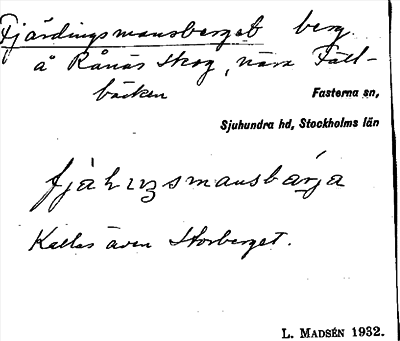 Fjärdingsmansberget berg
å Rånäs skog, nära Fätt-
bäcken
Fasterna sn,
Sjuhundra hd, Stockholms län
Kallas även Storberget.
L. MADSÉN 1932.